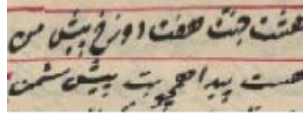 هشت جنت هفت دوزخ پیش من
هست پیدا همچو بت پیش شمن